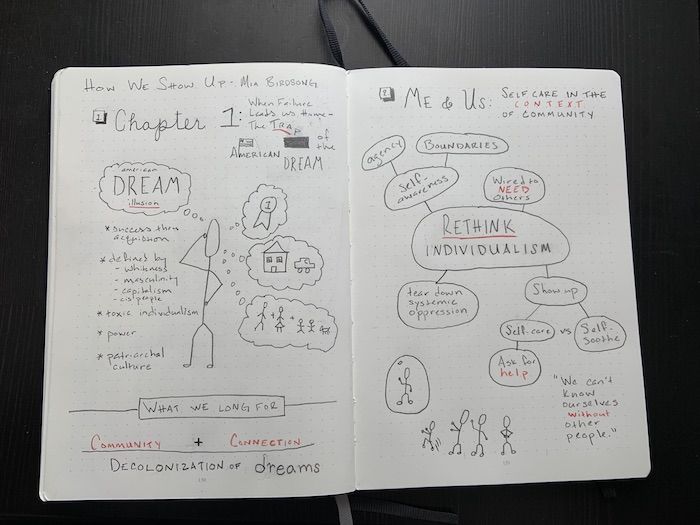 How We Show Up - Mia Birdsong
1
Chapter 1:
When Failure
Leads us Home -
The TRAP
of
the
AMERICAN
DREAM
american
DREAM
illusion
* success thru
acquisition
* defined by
- whiteness
- masculinity
- capitalism
- cis people
* toxic individualism
* power
* patriarchal
culture
1
+ + +
What we long for
Community + Connection
Decolonization of dreams
Me & Us: Self care in the
CONTEXT
of community
agency
Boundaries
Self-
awareness
Wired to
NEED
others
RETHINK
INDIVIDUALISM
tear down
systemic
oppression
Show up
Self-care vs Self-
Soothe
Ask for
help
"We can't
know
ourselves
without
other
people."